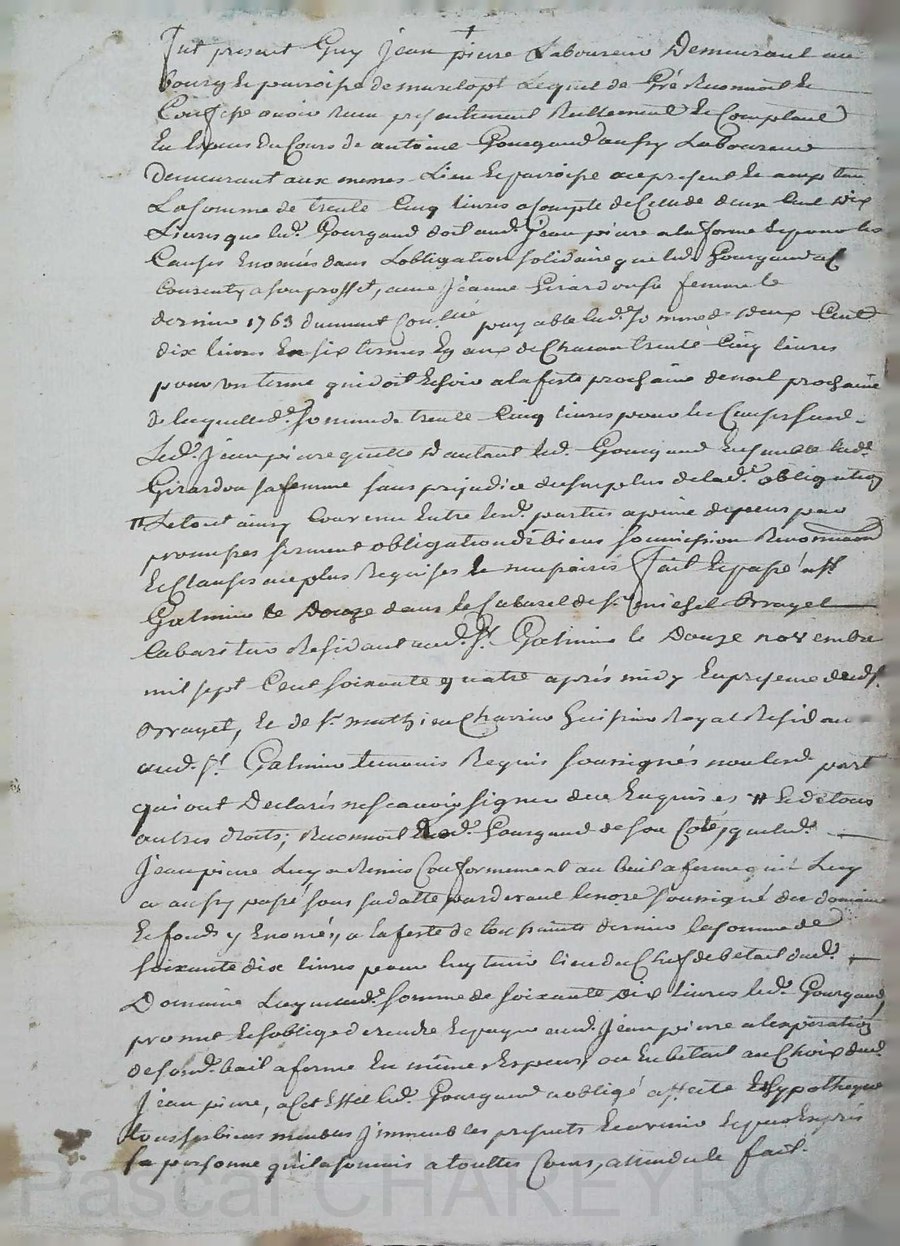 Fut present Guy Jean pierre Laboureur Demeurant au
bourg & parroisse de marclopt Lequel de Gré Reconnoit &
Confesse avoir Recu presentement Reellement & Comptant
En Especes du Cours de antoine Gourgaud aussy Laboureur
demeurant aux memes Lieu & parroisse acepresent & acceptant
La somme de trente Cinq livres acompte de Celle de deux Cent dix
Livres que led. Gourgaud doit aud. Jean pierre a la forme & pour les
Causes Enoncés dans Lobligation solidaire que led. Gourgaud a
Consenty a son proffit, avec Jeanne Girardon sa femme le
dernier 1763 dument payable lad. somme de deux Cent
dix livres En six termes Egaux de Chacun trente Cinq livres
pour un terme qui doit Echoir a la feste prochaine de noel prochaine
de laquelle d. somme de trente Cinq livres pour les Causes susd.
Led. Jean pierre quitte d'autant led. Gourgaud Ensemble lad.
Girardon sa femme sans prejudice du surplus de lad. obligation
# Le tout ainsy Convenu Entre lesd. parties a peine depens par
promesses serment obligation de biens soumission Renonciation
& Clauses au plus Requises & Fait & passé a St
Galmier le Douze dans le Cabaret de Sr. michel Orrayet
Cabaretier Residant aud. St. Galmier le Douze novembre
mil sept Cent soixante quatre après midy En presence dud. Sr.
Orrayet, & de Sr. mathieu Charvin huissier Royal Residant
aud. St. Galmier temoins Requis soussignés non lesd. part
qui ont Declarés ne scavoir signer de ce Enquises # & de tous
autres droits; Reconnoit led. Gourgaud de son Coté, que led.
Jean pierre Luy a Remis Conformement au bail a ferme qui Luy
a aussy passé sous sa datte pardevant le nore soussigné du domaine
& fonds y Enoncés, a la feste de toussaints dernier la somme de
soixante dix livres pour luy tenir lieu du Chef de betail dud.
Domaine Laquelle d. somme de soixante dix livres led. Gourgaud
promet & s'oblige de rendre & payer aud. Jean pierre a lexpiration
de sond. bail a ferme En même Especes, ou En betail au Choix dud.
Jean pierre, a Cet Effet led. Gourgaud a obligé affecté & hypotheque
tous ses biens meubles Jmmeubles presents & avenir & par Exprès
sa personne qu'il a soumis a touttes Cours, attendu le fait.
Pascal CHAREYRON